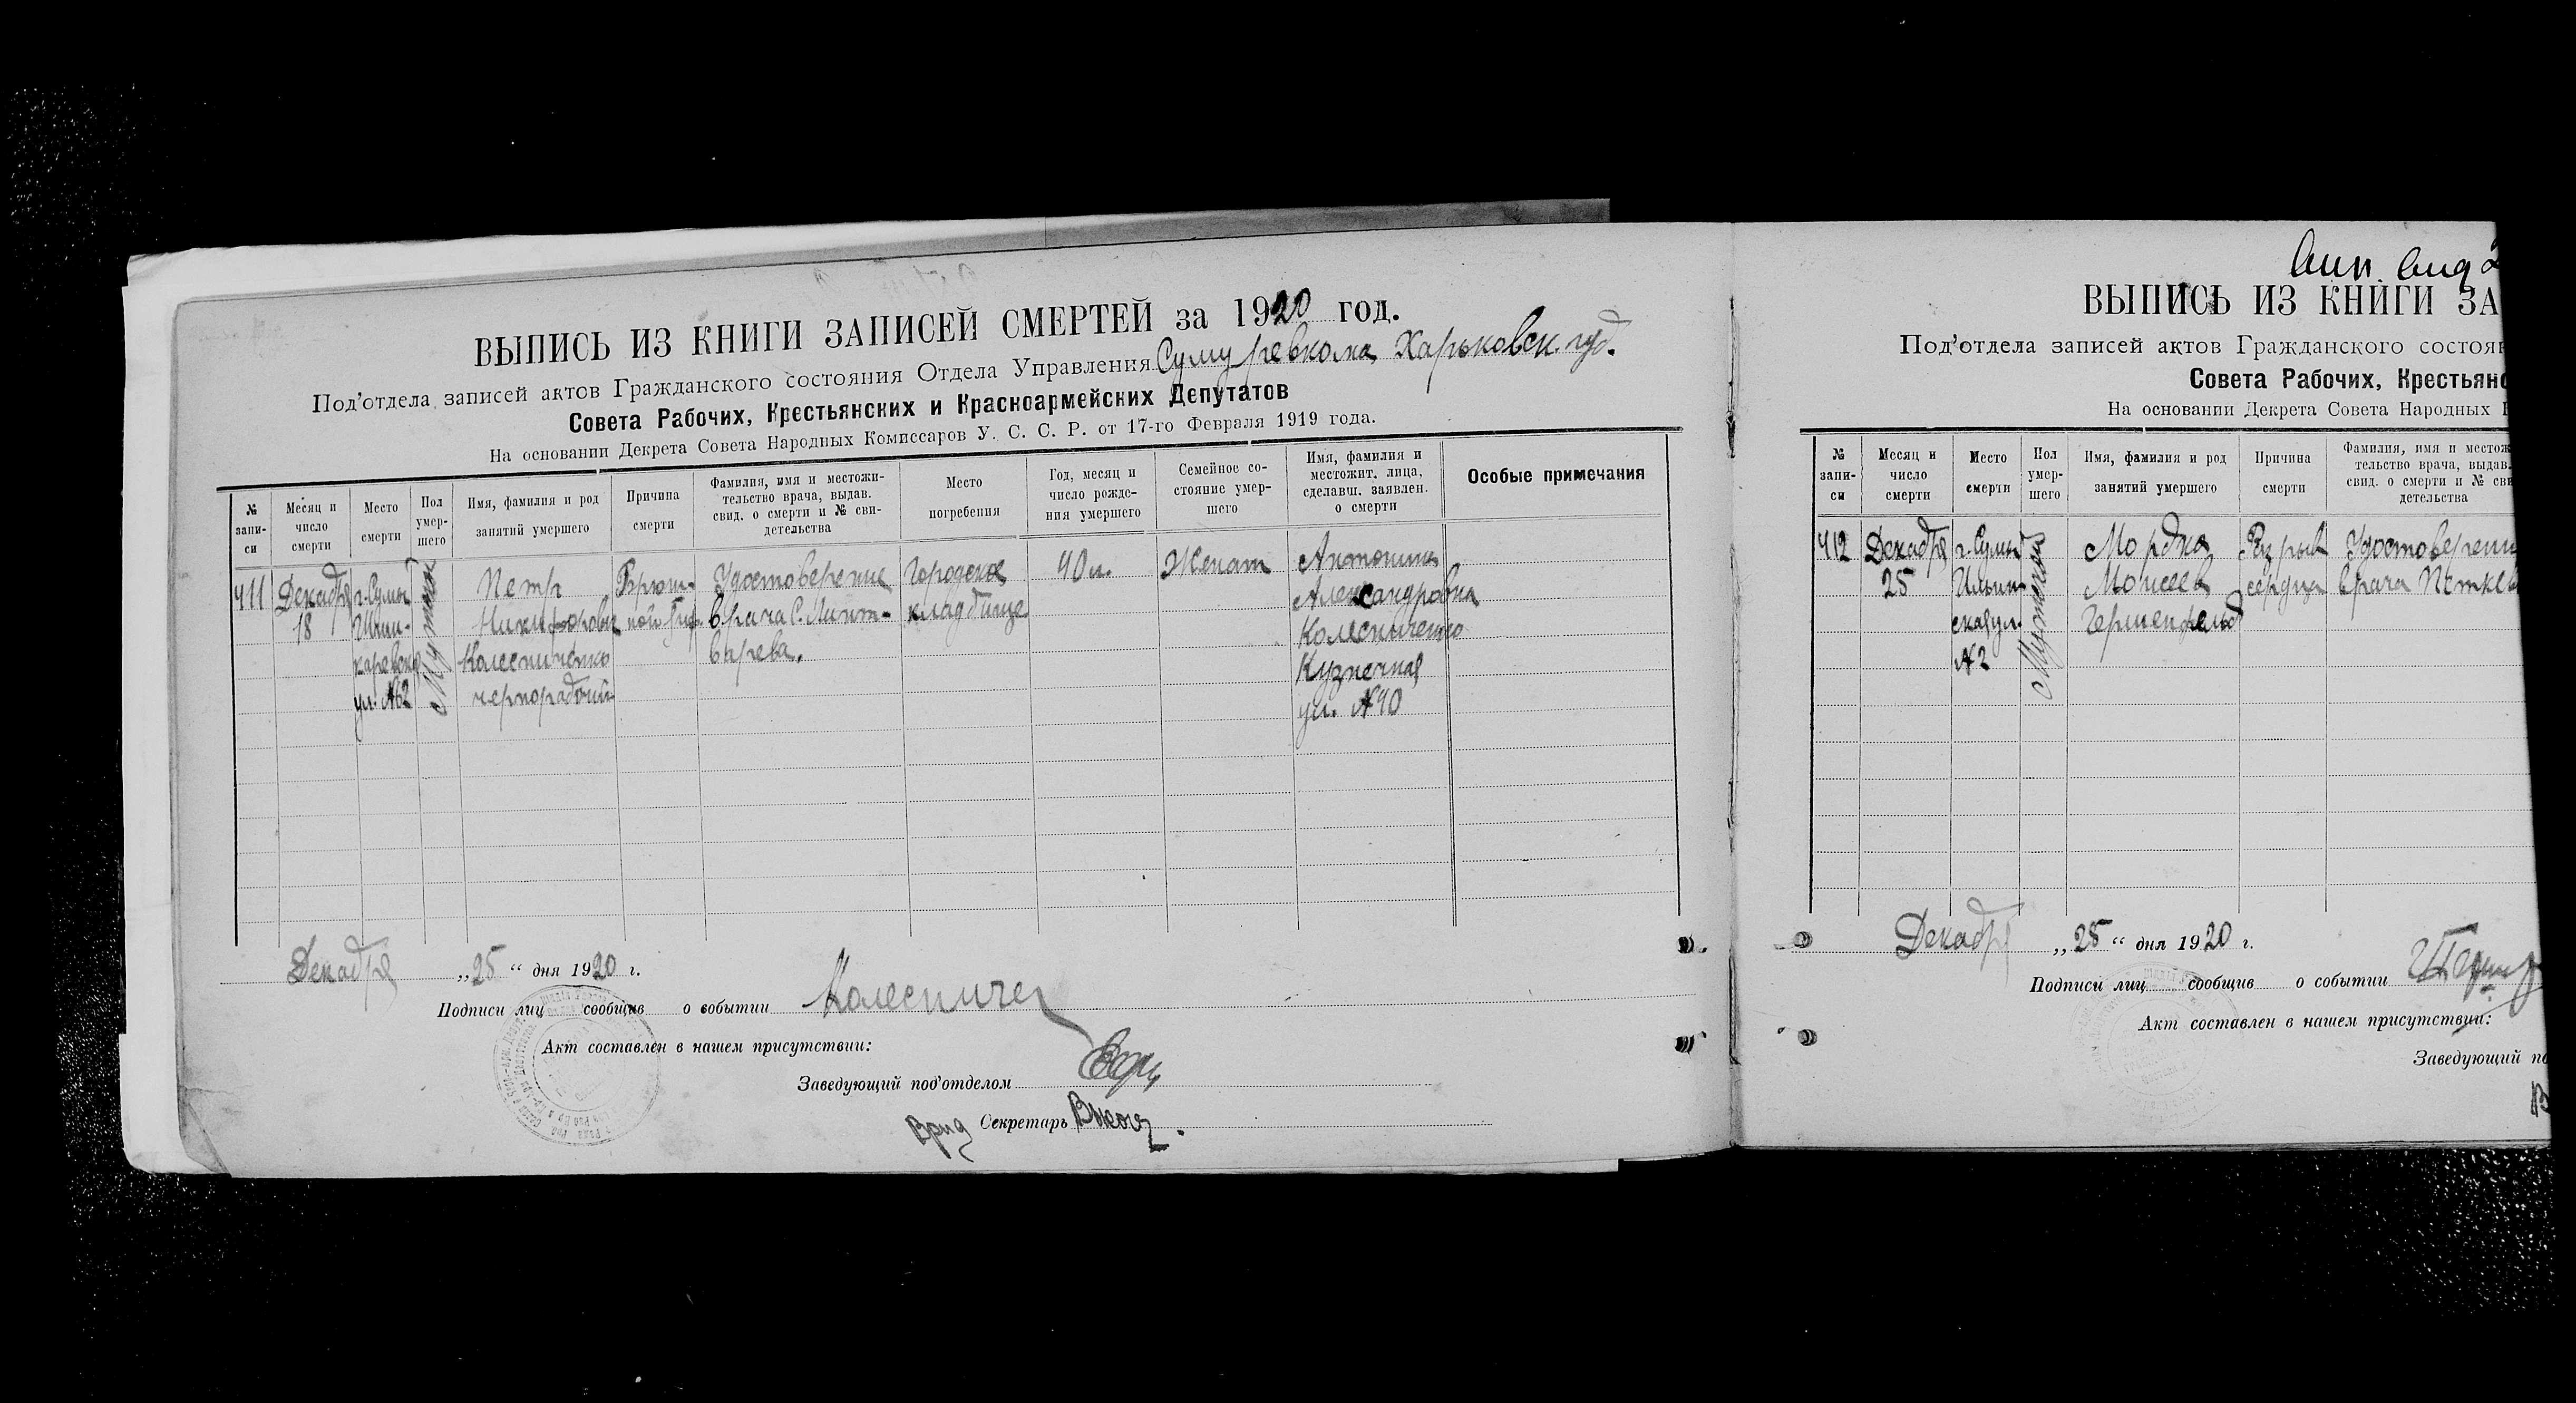 ВЫПИСЬ ИЗ КНИГИ ЗАПИСЕЙ СМЕРТЕЙ за 1920 год.
Под'отдела записей актов Гражданского состояния Отдела Управления Сум у ревкома Харьковск. губ.
Совета Рабочих, Крестьянских и Красноармейских Депутатов
На основании Декрета Совета Народных Комиссаров У. С. С. Р. от 17-го Февраля 1919 года.
№ запи-
си
Месяц и
число
смерти
Место
смерти
Пол
умер-
шего
Имя, фамилия и род
занятий умершего
Причина
смерти
Фамилия, имя и местожи-
тельство врача, выдав.
свид. о смерти и № сви-
детельства
Место
погребения
Год, месяц и
число рожде-
ния умершего
Семейное со-
стояние умер-
шего
Имя, фамилия и
местожит. лица,
сделавш. заявлен.
о смерти
Особые примечания
411
Декабря
18
г. Сумы
каревска
ул. №62
Мужчина
Петр
Никифорович
Колесниченко
чернорабочий
Брюш-
ной тиф.
Удостоверение
врача С.
варева.
Городское
кладбище
40 л.
Женат
Антонина
Александровна
Колесниченко
Кузнечная
ул. №40
Декабря „25“ дня 1920 г.
Подписи лиц сообщив о событии Колесниче
Акт составлен в нашем присутствии:
Заведующий под'отделом
Врид Секретарь
ВЫПИСЬ ИЗ КНИГИ ЗА
Под'отдела записей актов Гражданского состоян
Совета Рабочих, Крестьянс
На основании Декрета Совета Народных
№
запи-
си
Месяц и
число
смерти
Место
смерти
Пол
умер-
шего
Имя, фамилия и род
занятий умершего
Причина
смерти
Фамилия, имя и местож
тельство врача, выдав.
свид. о смерти и № сви
детельства
412
Декабря
25
г. Сумы
Ильин-
ская ул.
№2
Мужчина
Мордка
Моисеев
Гершенфельд
Разрыв
сердца
Удостоверени
врача
Декабря „25“ дня 1920 г.
Подписи лиц сообщив о событии
Акт составлен в нашем присутствии:
Заведующий по